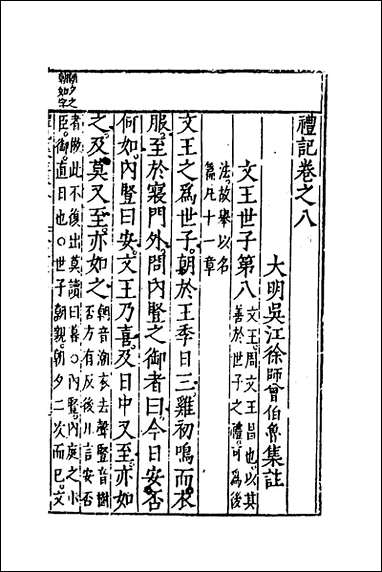 禮記卷之八
大明吳江徐師曾伯魯集註
文王世子第八
文王周文王昌也以其
善於世子之禮可爲後
法故舉以名
篇凡十一章
文王之爲世子朝於王季日三雞初鳴而衣
服至於寢門外問內豎之御者曰今日安否
何如內豎曰安文王乃喜及日中又至亦如
之及莫又至亦如之
朝音潮衣去聲豎音樹
否方有反後凡言安否
者倣此不復出莫讀曰暮○內豎內庭之小
臣御直日也○世子朝親朝夕二次而已文
朝夕之
朝如字